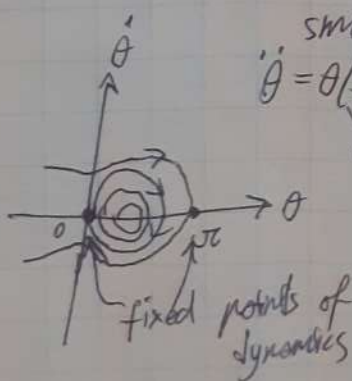 θ̇
θ̈ = θ(
0
θ
π
fixed points of
dynamics